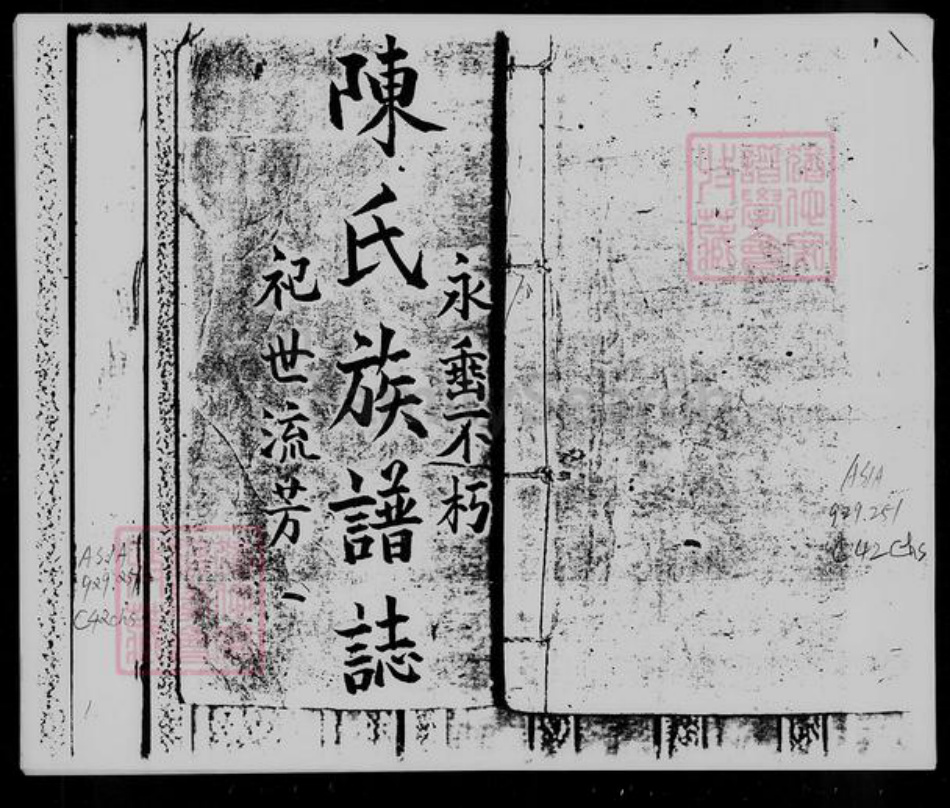 永垂不朽
陳氏族譜誌
祀世流芳
ASIA
929.251
C42chs
ASIA
929.251
C42chs